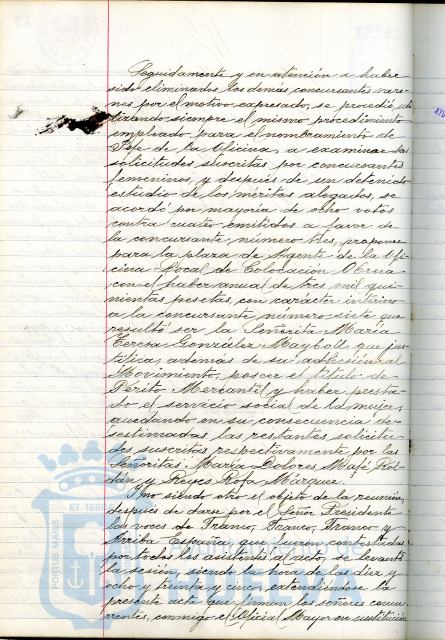 Seguidamente y en atención a haber
sido eliminados los demás concursantes varo-
nes por el motivo expresado, se procedió, uti-
lizando siempre el mismo procedimiento
empleado para el nombramiento de
Jefe de la Oficina, a examinar las
solicitudes suscritas por concursantes
femeninos, y después de un detenido
estudio de los méritos alegados, se
acordó por mayoría de ocho votos
contra cuatro emitidos a favor de
la concursante número tres, proponer
para la plaza de Agente de la Ofi-
cina Local de Colocación Obrera
con el haber anual de tres mil qui-
nientas pesetas, con carácter interino
a la concursante, número siete que
resultó ser la Señorita María
Teresa González Maybolle que jus-
tifica, además de su adhesión al
Movimiento, poseer el título de
Perito Mercantil y haber presta-
do el servicio social de la mujer,
quedando en su consecuencia de-
sestimadas las restantes solicitu-
des suscritas respectivamente por las
Señoritas: María Dolores Mafé Rol-
dán y Reyes Rofa Márquez.
Y no siendo otro el objeto de la reunión,
después de darse por el Señor Presidente
las voces de Franco, Franco, Franco y
Arriba España, que fueron contestadas
por todos los asistentes al acto, se levantó
la sesión, siendo la hora de las diez y
ocho y treinta y cinco, extendiéndose la
presente acta que firman los señores concu-
rrentes, conmigo el Oficial Mayor en sustitución
PORTUS MARIS
ET TERR
HUELVA